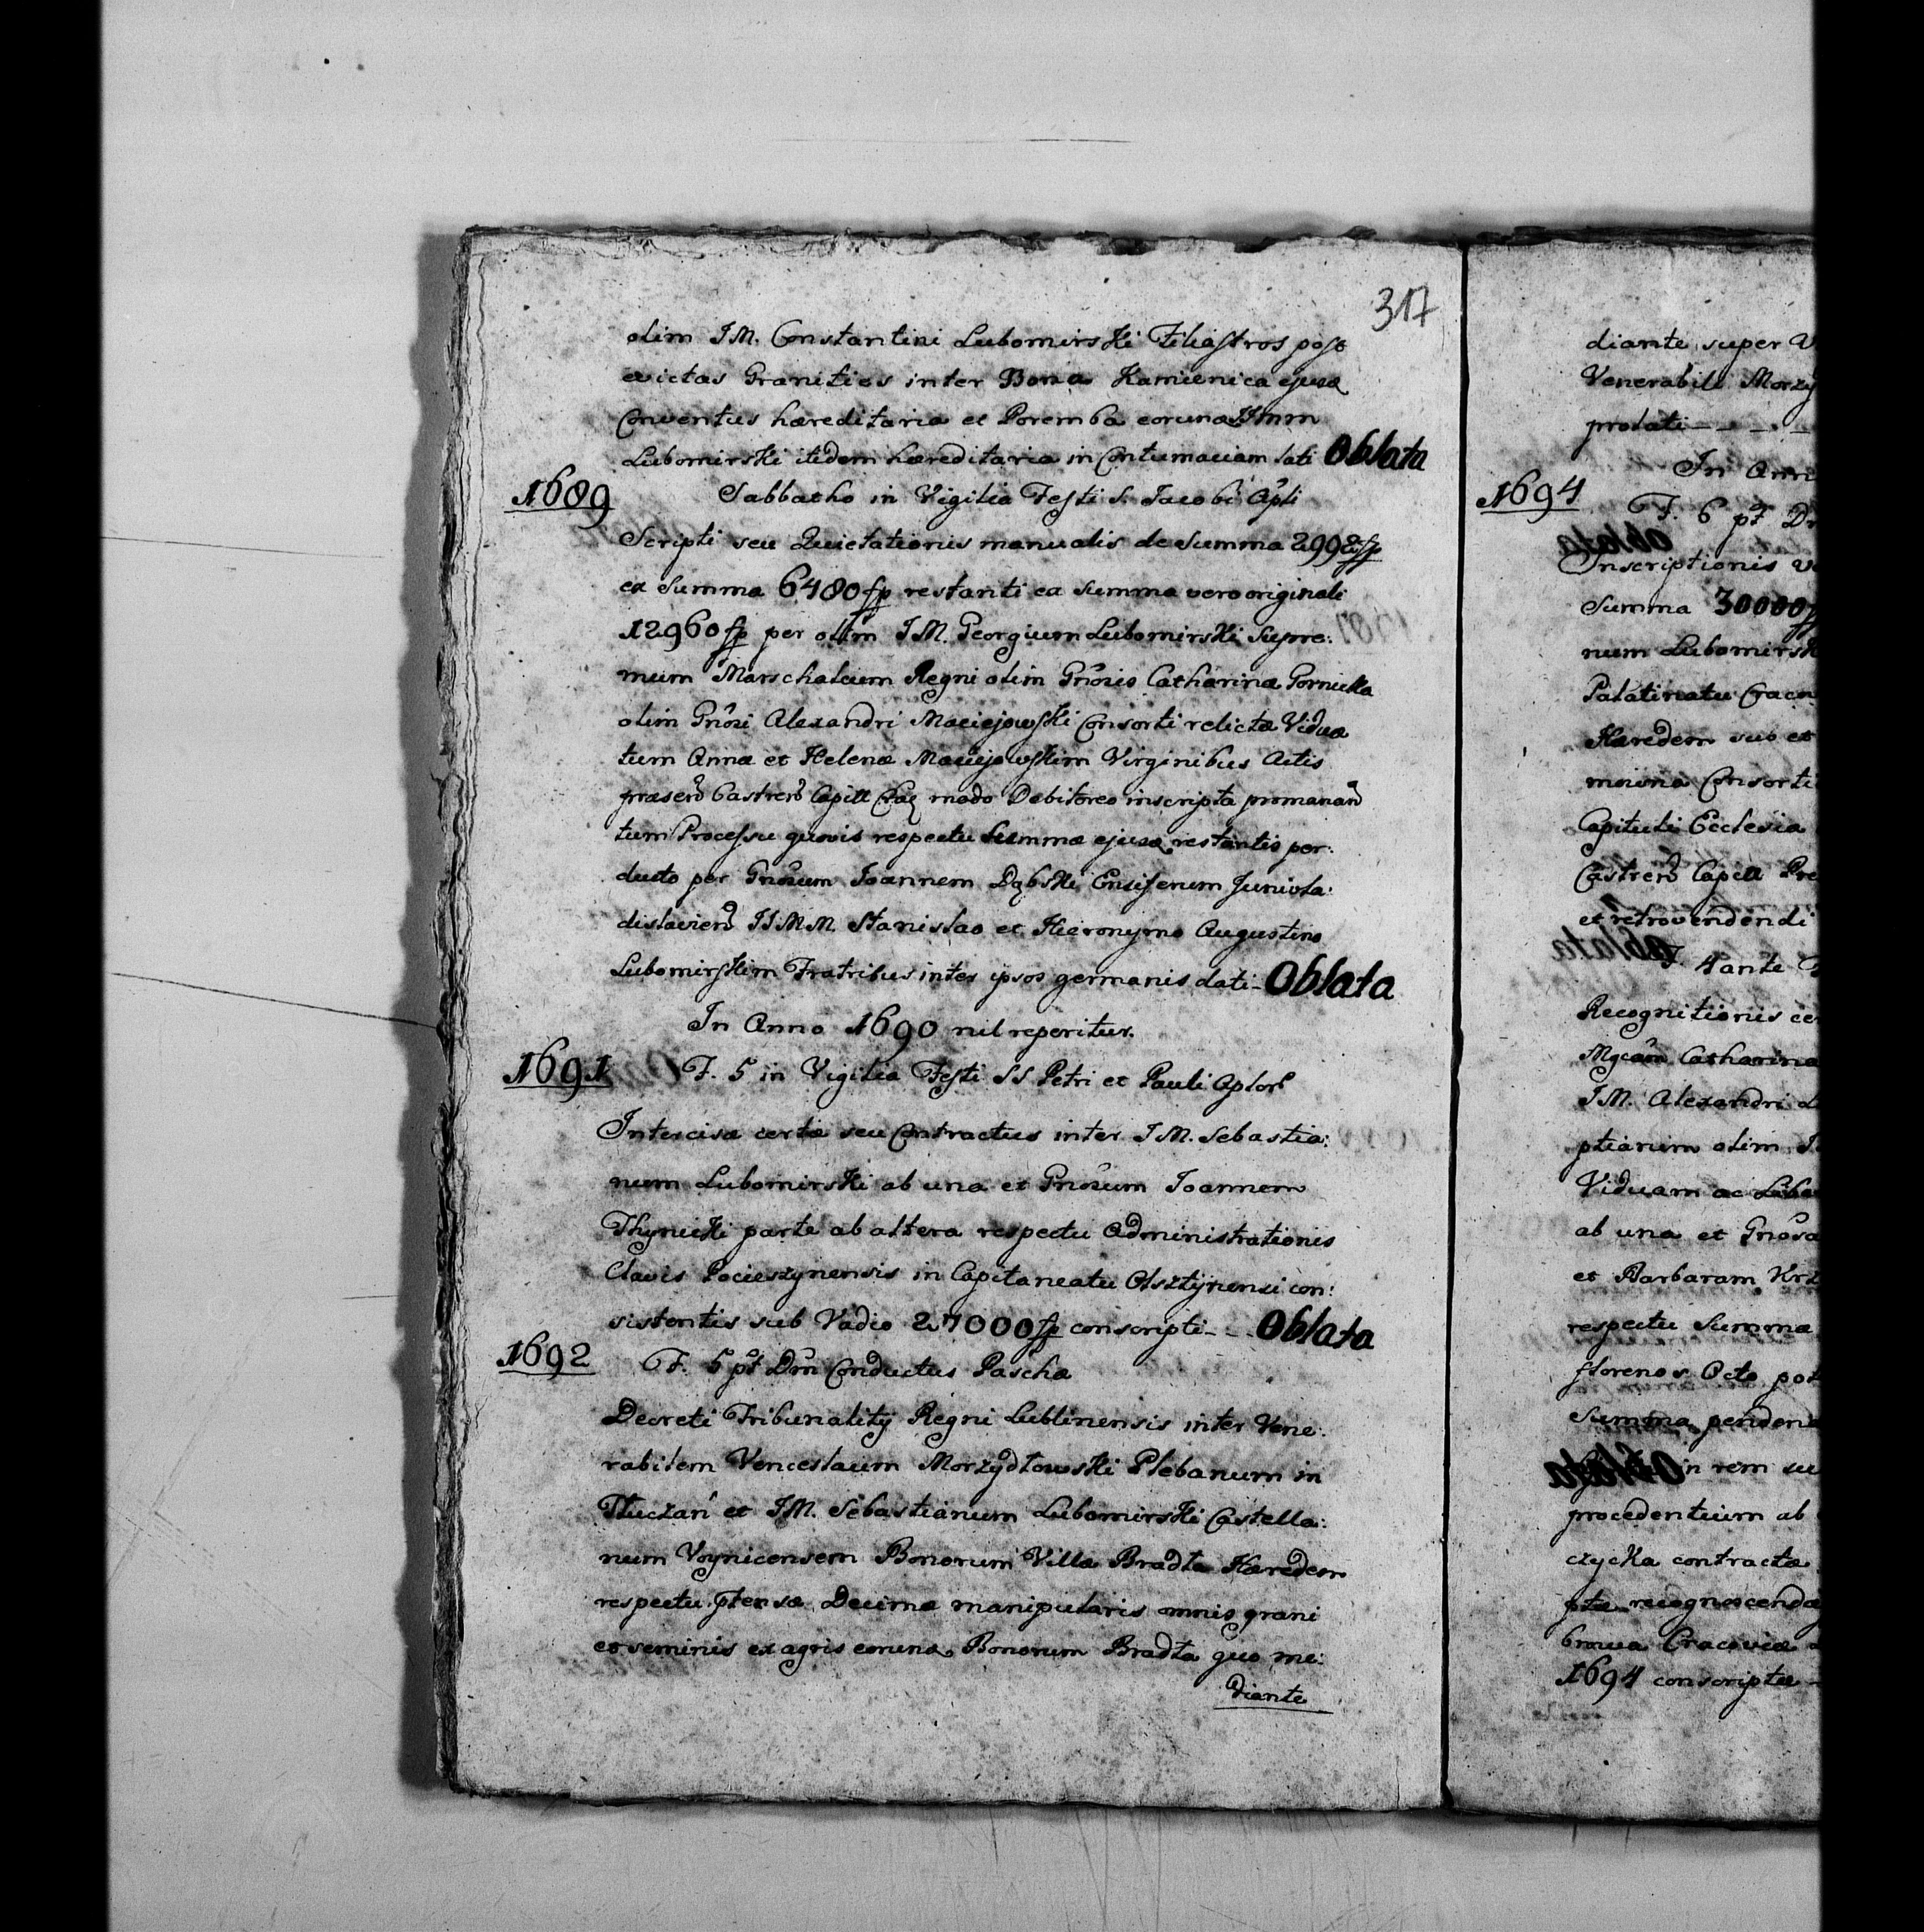 317
olim JM. Constantini Lubomirski Filiastros post
evictas Granities inter Bona Kamienica ejusq
Conventus hæreditaria et Poremba eorunq JJmm
Lubomirski itidem hæreditaria in Contumaciam lati Oblata
1689 Sabbatho in Vigilia Festi S. Jacobi Apli
Scripti seu Quietationis manualis de Summa 2992 fp
ex Summa 6480 fp restanti ex summa vero originali
12960 fp per olim JM. Georgium Lubomirski Supre:
mum Marschalcum Regni olim Gnosæ Catharinæ Gornicka
olim Gnosi Alexandri Maciejowski Consorti relictæ Viduæ
tum Annæ et Helenæ Maciejowskim Virginibus Actis
præsen Castren Capitt Crac modo Debitoreo inscripta promanan
tum Processu quovis respectu Summæ ejusq restantis per:
ducto per Gnosum Joannem Dąbski Ensiferum Junivla:
dislavien JJMM. Stanislao et Hieronymo Augustino
Lubomirskim Fratribus inter ipsos germanis dati - Oblata
In Anno 1690 nil reperitur.
1691 F. 5 in Vigilia Festi SS Petri et Pauli Aplor
Intercisæ certæ seu Contractus inter JM. Sebastia:
num Lubomirski ab una et Gnosum Joannem
Thynicki parte ab altera respectu Administrationis
Clavis Pocieszynensis in Capitaneatu Olsztynensi con:
sistentis sub Vadio 27000 fp conscripti - - Oblata
1692 F. 5 pt Dm Conductus Paschæ
Decreti Tribunalitÿ Regni Lublinensis inter Vene:
rabilem Venceslaum Morzydłowski Plebanum in
Tłuczań et JM. Sebastianum Lubomirski Castella:
num Voynicensem Bonorum Villæ Bradła Hæredem
respectu ptensæ Decimæ manipularis omnis grani
et seminis ex agris eorunq Bonorum Bradła quo me:
diante
diante super
Venerabili
prolati - - - -
In
1694 F. 6 pt
Inscriptionis
Summa 30000
num
Palatinatu
Hæredem sub et
Consorti
Capituli Ecclesiæ
Castren Capitt
et retrovendendi
F. 4 ante
Recognitionis
Catharina
JM. Alexandri
ptiarum olim
Viduam ac
ab una et
et Barbaram
respectu Summæ
florenos Octo
Summa
in rem
procedentium ab
contracta
recognoscenda
Cracoviæ
1694 conscriptæ -